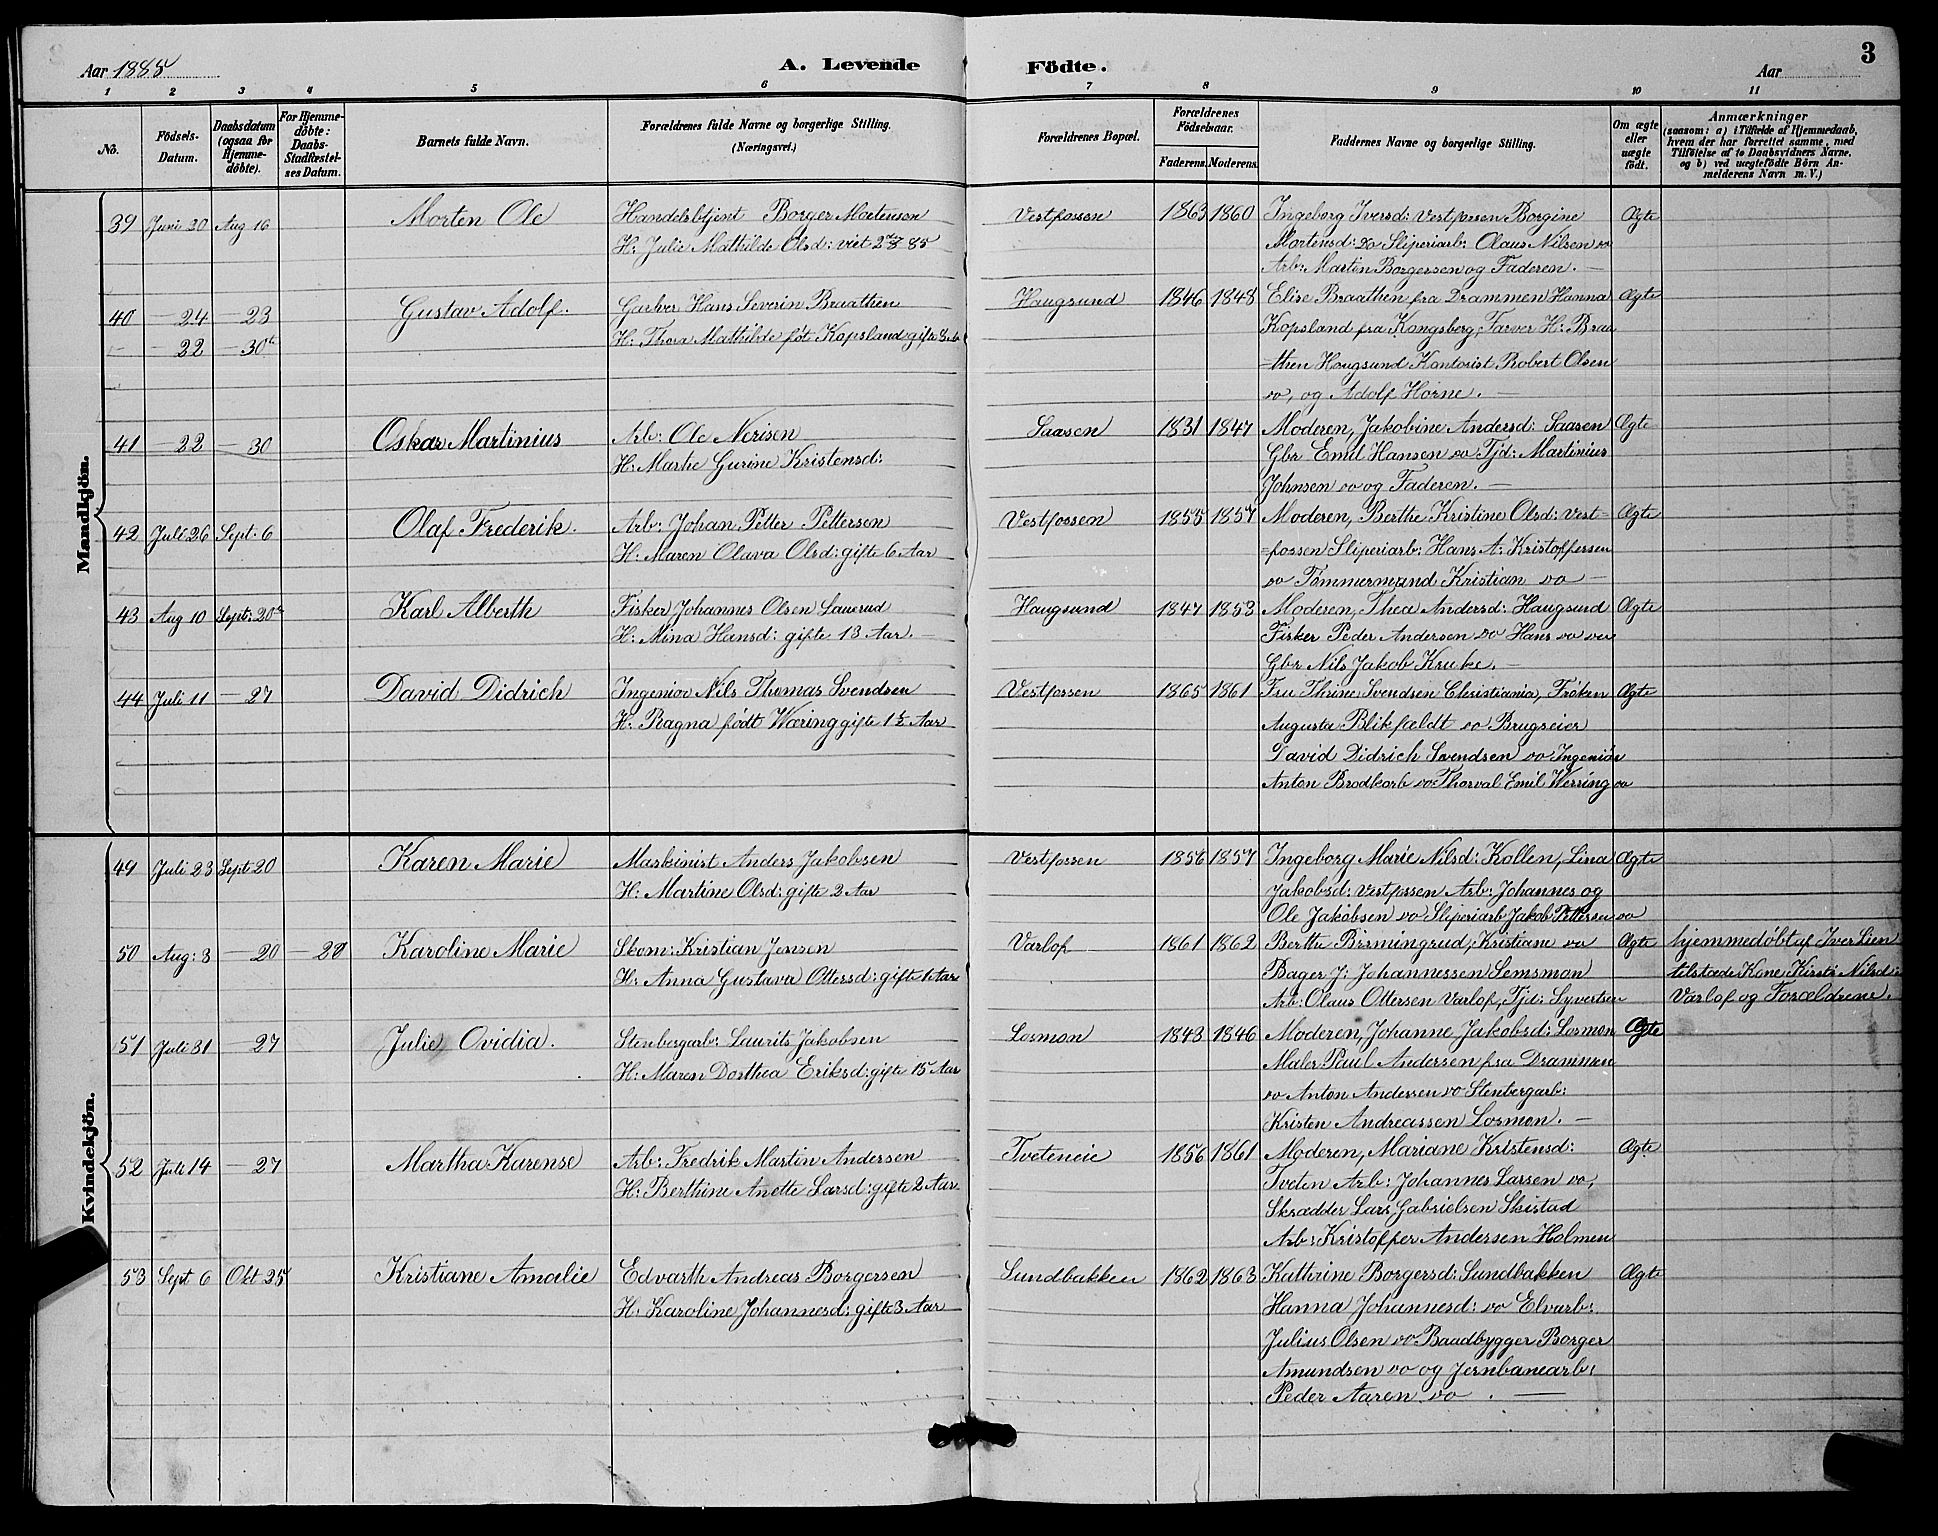 Aar 1885
A. Levende Födte.
Aar
3
1 2 3 4 5 6 7 8 9 10 11
No.
Födsels-Datum.
Daabsdatum (ogsaa for Hjemmedöbte).
For Hjemmedöbte: Daabs-Stadfæstelses Datum.
Barnets fulde Navn.
Forældrenes fulde Navne og borgerlige Stilling. (Næringsvei.)
Forældrenes Bopæl.
Forældrenes Födselsaar.
Faderens. Moderens.
Faddernes Navne og borgerlige Stilling.
Om ægte eller uægte födt.
Anmærkninger
(saasom: a) i Tilfælde af Hjemmedaab, hvem der har forrettet samme, med Tilföielse af to Daabsvidners Navne, og b) ved uægtefödte Börn Anmelderens Navn m. V.)
Mandkjön.
39 Juni 30 Aug 16 Morten Ole Handelsbtjent Borger Mortensen Vestfossen 1863 1860 Ingeborg Iversd: Vestfossen Borgine Ægte
H: Julie Mathilde Olsd: viet 85 Mortensd: do Sliperiarb: Olaus Nilsen do
Arb: Martin Borgersen og Faderen. —
40 — 24 — 23 Gustav Adolf. Garver Hans Severin Braathen Haugsund 1846 1848 Elise Braathen fra Drammen Hanna Ægte
— 22 — 30 H: Thora Mathilde föt Kopsland gifte Kopsland fra Kongsberg, Farver H: Braa
-then Haugsund Kontorist Robert Olsen
do, og Adolf Horne. —
41 — 22 — 30 Oskar Martinius Arb: Ole Nerisen Saasen 1831 1847 Moderen, Jakobine Andersd: Saasen Ægte
H: Marthe Gurine Kristensd: Gbr Emil Hansen do Tjd: Martinius
Johnsen do og Faderen. —
42 Juli 26 Sept. 6 Olaf Frederik. Arb: Johan Petter Pettersen Vestfossen 1855 1857 Moderen, Berthe Kristine Olsd: Vest= Ægte
H: Maren Olava Olsd: gifte 6 Aar =fossen Sliperiarb: Hans A: Kristoffersen
do Tömmermand Kristian do —
43 Aug 10 Sept: 20 Karl Alberth Fisker Johannes Olsen Sauerud Haugsund 1847 1853 Moderen, Thea Andersd: Haugsund Ægte
H: Mina Hansd: gifte 13 Aar. — Fisker Peder Andersen do Hans do do
Gbr Nils Jakob Kruke. —
44 Juli 11 — 27 David Didrich Ingeniör Nils Thomas Svendsen Vestfossen 1865 1861 Fru Thrine Svendsen Christiania, Fröken Ægte
H: Ragna født Wæring gifte 1½ Aar Augusta Blikfeldt do Brugseier
David Didrich Svendsen do Ingeniör
Anton Brodkorb do Thorval Emil Werring do
Kvindekjön.
49 Juli 23 Sept 20 Karen Marie Maskinist Anders Jakobsen Vestfossen 1856 1857 Ingeborg Marie Nilsd: Kollen, Lina Ægte
H: Martine Olsd: gifte 2 Aar Jakobsd: Vestfossen Arb: Johannes og
Ole Jakobsen do Sliperiarb Jakob Pettersen do
50 Aug: 3 — 20 — 20 Karoline Marie Skom: Kristian Jensen Varlof 1861 1862 Berthe Bermingrud, Kristiane do Ægte hjemmedøbt af Iver Lien
H: Anna Gustava Ottersd: gifte 1 Aar Bager J: Johannessen Semsmon tilstæde Kone Kirsti Nilsd:
Arb: Olaus Ottersen Varlof, Tjd: Syvertsen Varlof og Forældrene.
51 Juli 31 — 27 Julie Ovidia. Stenbergarb: Laurits Jakobsen Losmon 1843 1846 Moderen, Johanne Jakobsd: Losmon Ægte
H: Maren Dorthea Eriksd: gifte 15 Aar Maler Paul Andersen fra Drammen
do Anton Andersen do Stenbergarb:
Kristen Andreassen Losmon. —
52 Juli 14 — 27 Martha Karense Arb: Fredrik Martin Andersen Tveteneie 1856 1861 Moderen, Mariane Kristensd: Ægte
H: Berthine Anette Larsd: gifte 2 Aar Tveten Arb: Johannes Larsen do,
Skrædder Lars Gabrielsen Skistad
Arb: Kristoffer Andersen Holmen
53 Sept 6 Okt 25 Kristiane Amalie Edvarth Andreas Borgersen Sundbakken 1862 1863 Kathrine Borgersd: Sundbakken Ægte
H: Karoline Johannesd: gifte 3 Aar Hanna Johannesd: do Elvarb:
Julius Olsen do Baadbygger Borger
Amundsen do og Jernbanearb:
Peder Aaren do . —